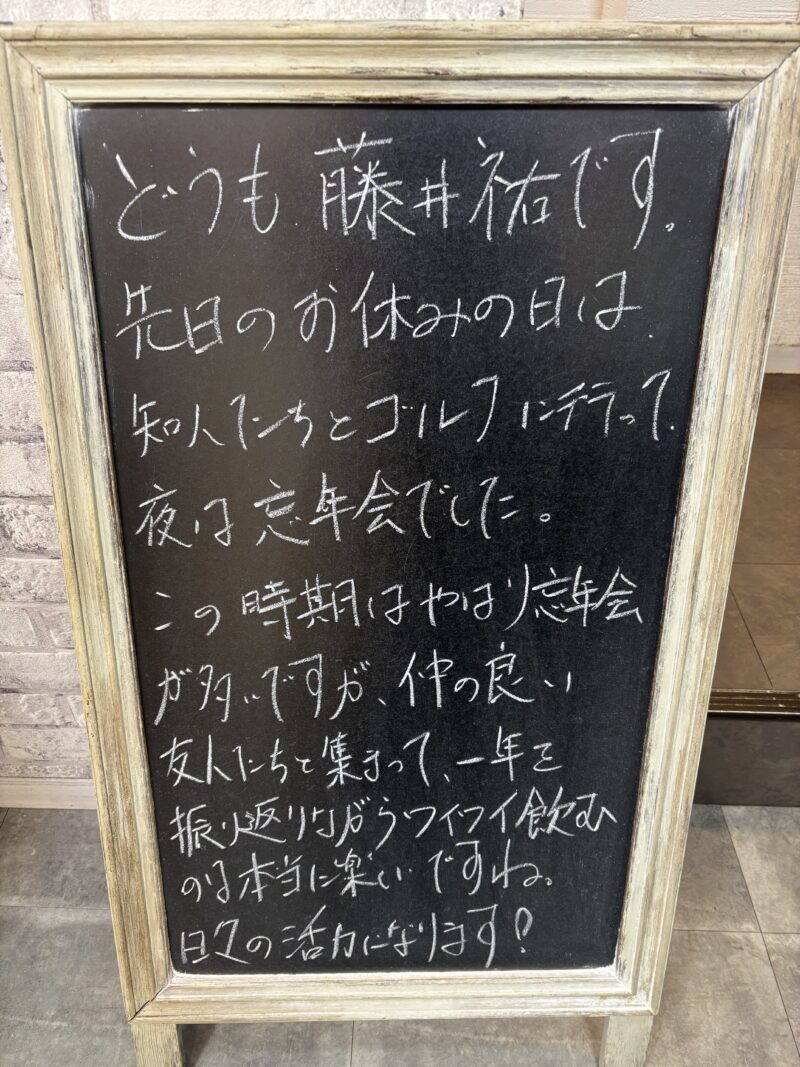 どうも藤井祐です。
先日のお休みの日は
知人たちとゴルフに行って、
夜は忘年会でした。
この時期はやはり忘年会
が多いですが、仲の良い
友人たちと集まって、一年を
振り返りながらワイワイ飲む
のは本当に楽しいですね。
日々の活力になります!